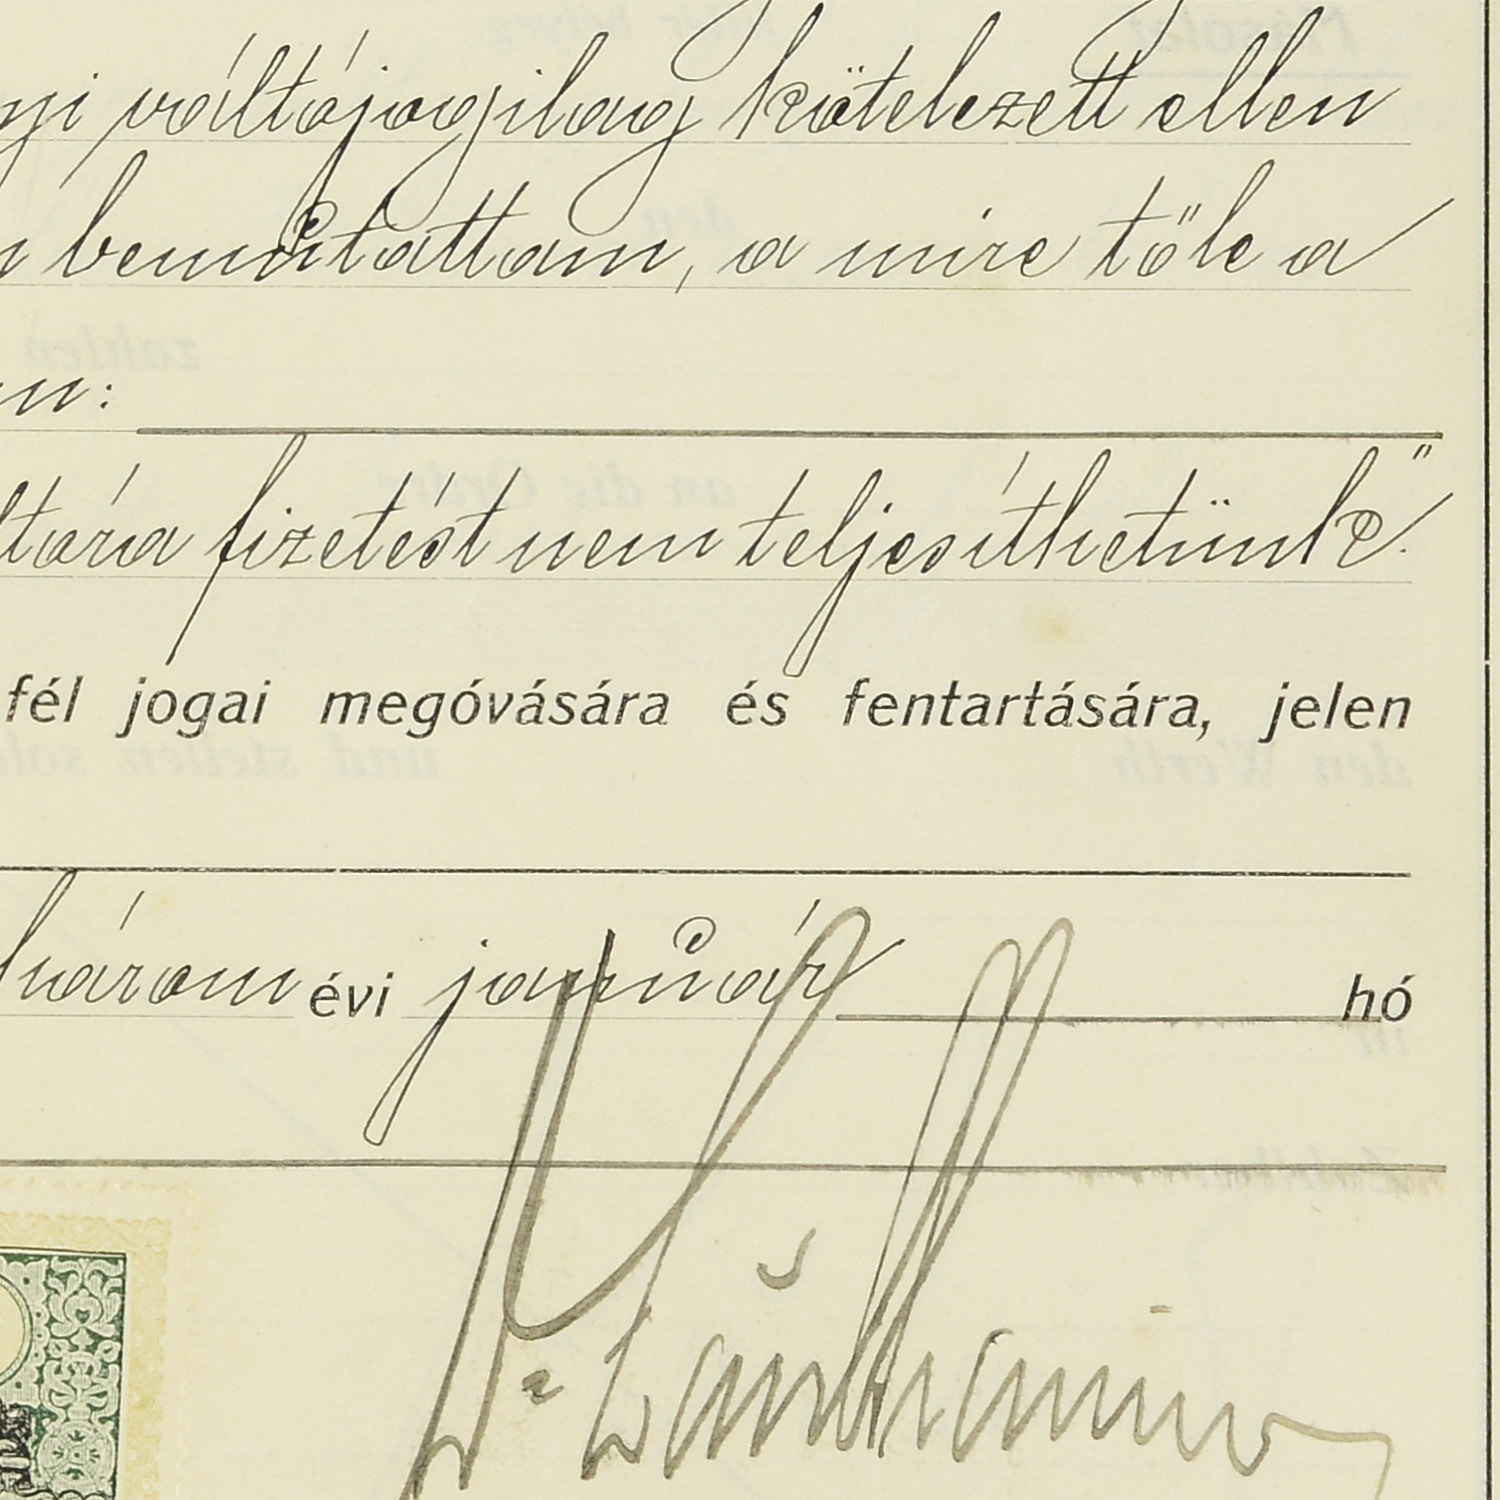 váltójogilag kötelezett ellen
bemutattam, a mire tőle a
fizetést nem teljesíthetünk."
fél jogai megóvására és fentartására, jelen
három évi január hó